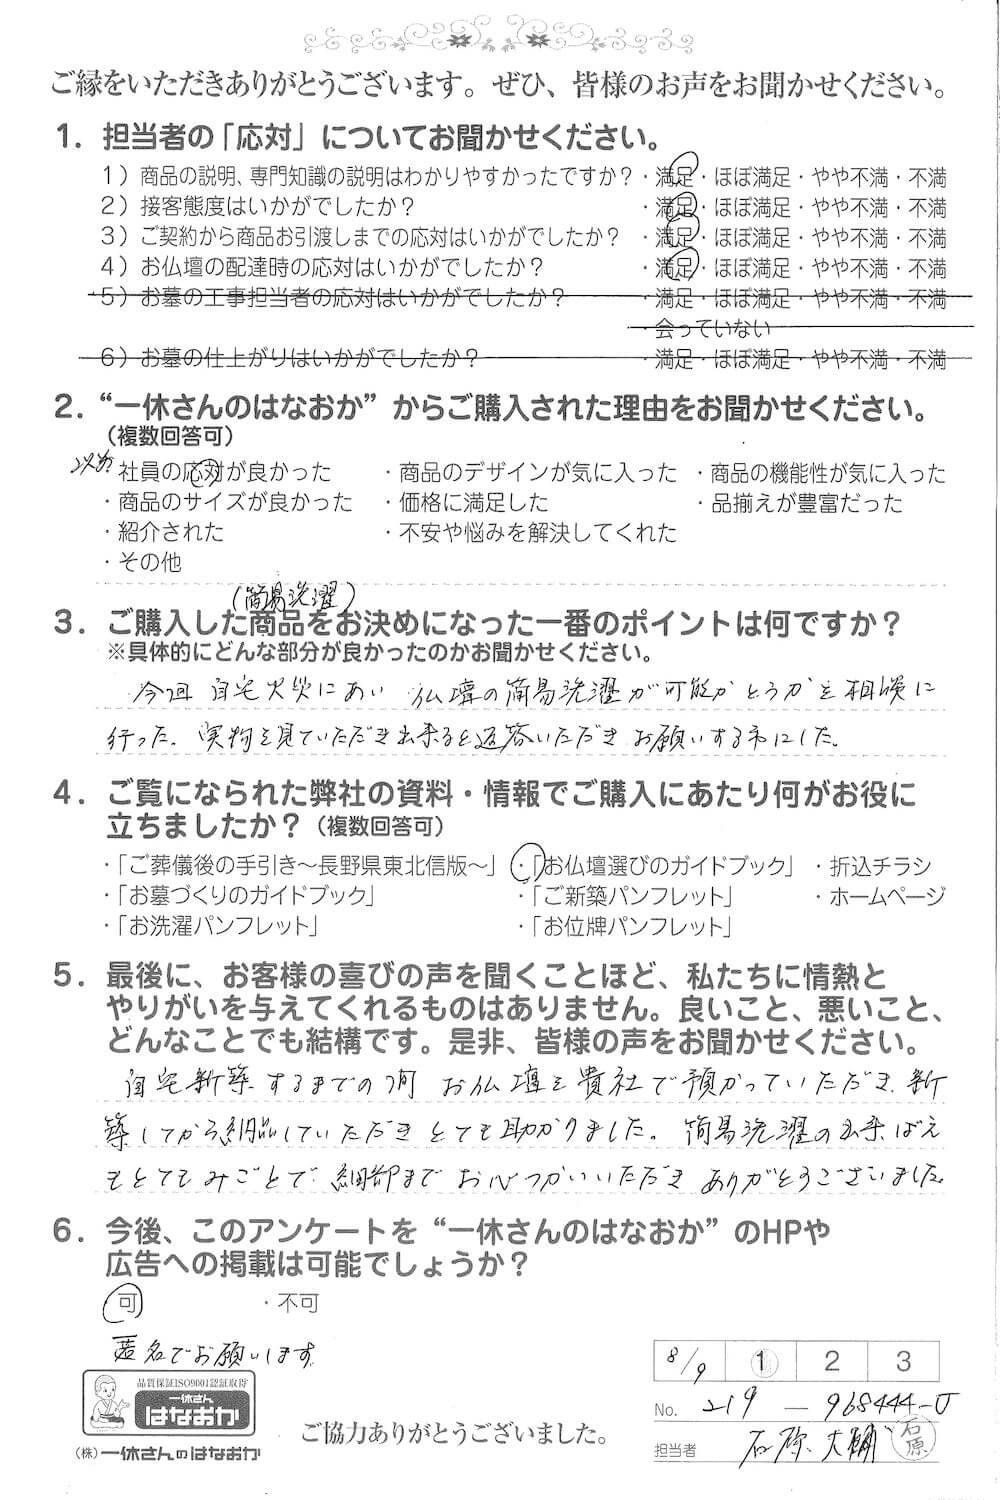 ご縁をいただきありがとうございます。ぜひ、皆様のお声をお聞かせください。
1. 担当者の「応対」についてお聞かせください。
1）商品の説明、専門知識の説明はわかりやすかったですか？・満足・ほぼ満足・やや不満・不満
2）接客態度はいかがでしたか？ ・満足・ほぼ満足・やや不満・不満
3）ご契約から商品お引渡しまでの応対はいかがでしたか？ ・満足・ほぼ満足・やや不満・不満
4）お仏壇の配達時の応対はいかがでしたか？ ・満足・ほぼ満足・やや不満・不満
5）お墓の工事担当者の応対はいかがでしたか？ ・満足・ほぼ満足・やや不満・不満
・会っていない
6）お墓の仕上がりはいかがでしたか？ ・満足・ほぼ満足・やや不満・不満
2. “一休さんのはなおか”からご購入された理由をお聞かせください。
（複数回答可）
以前 社員の応対が良かった ・商品のデザインが気に入った ・商品の機能性が気に入った
・商品のサイズが良かった ・価格に満足した ・品揃えが豊富だった
・紹介された ・不安や悩みを解決してくれた
・その他
（簡易洗濯）
3. ご購入した商品をお決めになった一番のポイントは何ですか？
※具体的にどんな部分が良かったのかお聞かせください。
今回 自宅火災にあい 仏壇の簡易洗濯が可能かどうかを相談に
行った。実物を見ていただき出来ると返答いただき お願いする事にした。
4. ご覧になられた弊社の資料・情報でご購入にあたり何がお役に
立ちましたか？（複数回答可）
・「ご葬儀後の手引き～長野県東北信版～」 ・「お仏壇選びのガイドブック」 ・折込チラシ
・「お墓づくりのガイドブック」 ・「ご新築パンフレット」 ・ホームページ
・「お洗濯パンフレット」 ・「お位牌パンフレット」
5. 最後に、お客様の喜びの声を聞くことほど、私たちに情熱と
やりがいを与えてくれるものはありません。良いこと、悪いこと、
どんなことでも結構です。是非、皆様の声をお聞かせください。
自宅新築するまでの間 お仏壇を貴社で預かっていただき、新
築してから納品していただき とても助かりました。簡易洗濯の出来ばえ
もとてもみごとで 細部まで お心づかいいただき ありがとうございました。
6. 今後、このアンケートを“一休さんのはなおか”のHPや
広告への掲載は可能でしょうか？
可 ・不可
匿名でお願いします
8/9 1 2 3
No. 219 — 968444-J
担当者 石原 大輔 石原
品質保証ISO9001認証取得
一休さん
はなおか
（株）一休さんのはなおか
ご協力ありがとうございました。